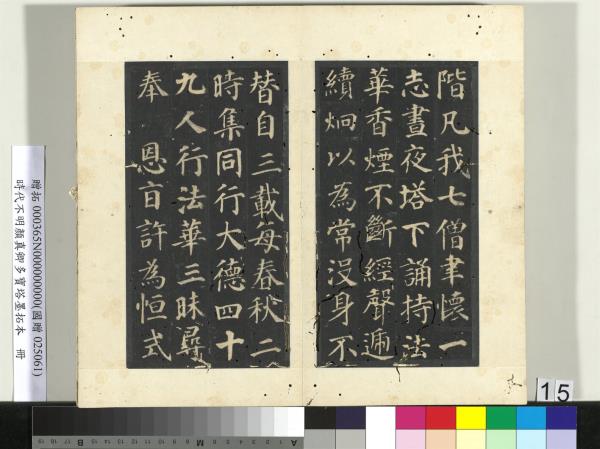 階凡我七僧聿懷一
志晝夜塔下誦持法
華香煙不斷經聲遞
續炯以為常沒身不
替自三載每春秋二
時集同行大德四十
九人行法華三昧尋
奉 恩旨許為恒式
贈拓 000365N000000000(國贈 025061)
時代不明顏真卿多寶塔墨拓本 冊
15
A
M
B